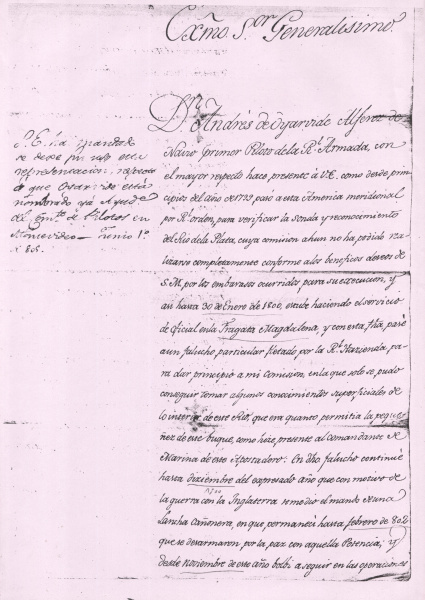 Exmo. S.or Generalisimo.
Dn. Andrés de Oyarvide Alferez de
Navio y primer Piloto de la Rl. Armada, con
el mayor respeto hace presente à V.E. como desde prin-
cipios del año de 1789 pasó a esta America meridional
por Rl. orden, para verificar la sonda y reconocimiento
del Rio de la Plata, cuya comision ahun no ha podido rea-
lizarse completamente conforme a los beneficos deseos de
S.M. por los embarazos ocurridos para su execucion, y
asi hasta 30 de Enero de 1800, estube haciendo el servicio
de oficial en la Fragata Magdalena, y con esta fha. pasé
a un falucho particular fletado por la Rl. Hazienda pa-
ra dar principio a mi Comision, en la que solo se pudo
conseguir tomar algunos conocimientos superficiales de
lo interior de este Rio, que era quanto permitia la peque-
ñez de este buque, como hize presente al Comandante de
Marina de este Apostadero: En dho. falucho continué
hasta Diziembre del expresado año que con motivo de
1800
la guerra con la Inglaterra se me dio el mando de una
Lancha Cañonera, en que permanezí hasta febrero de 802
que se desarmaron por la paz con aquella Potencia; y
desde Noviembre de este año bolbi a seguir en las operaciones
se debe por
representacion, respecto
a que Oyarvide está
nombrado ya Ayude.
del de Pilotos en
Montevideo — Junio 1º